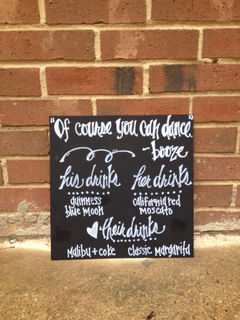 "Of course you can dance."
- booze
his drinks her drinks
guinness california red
blue moon moscato
their drinks
malibu + coke classic margarita